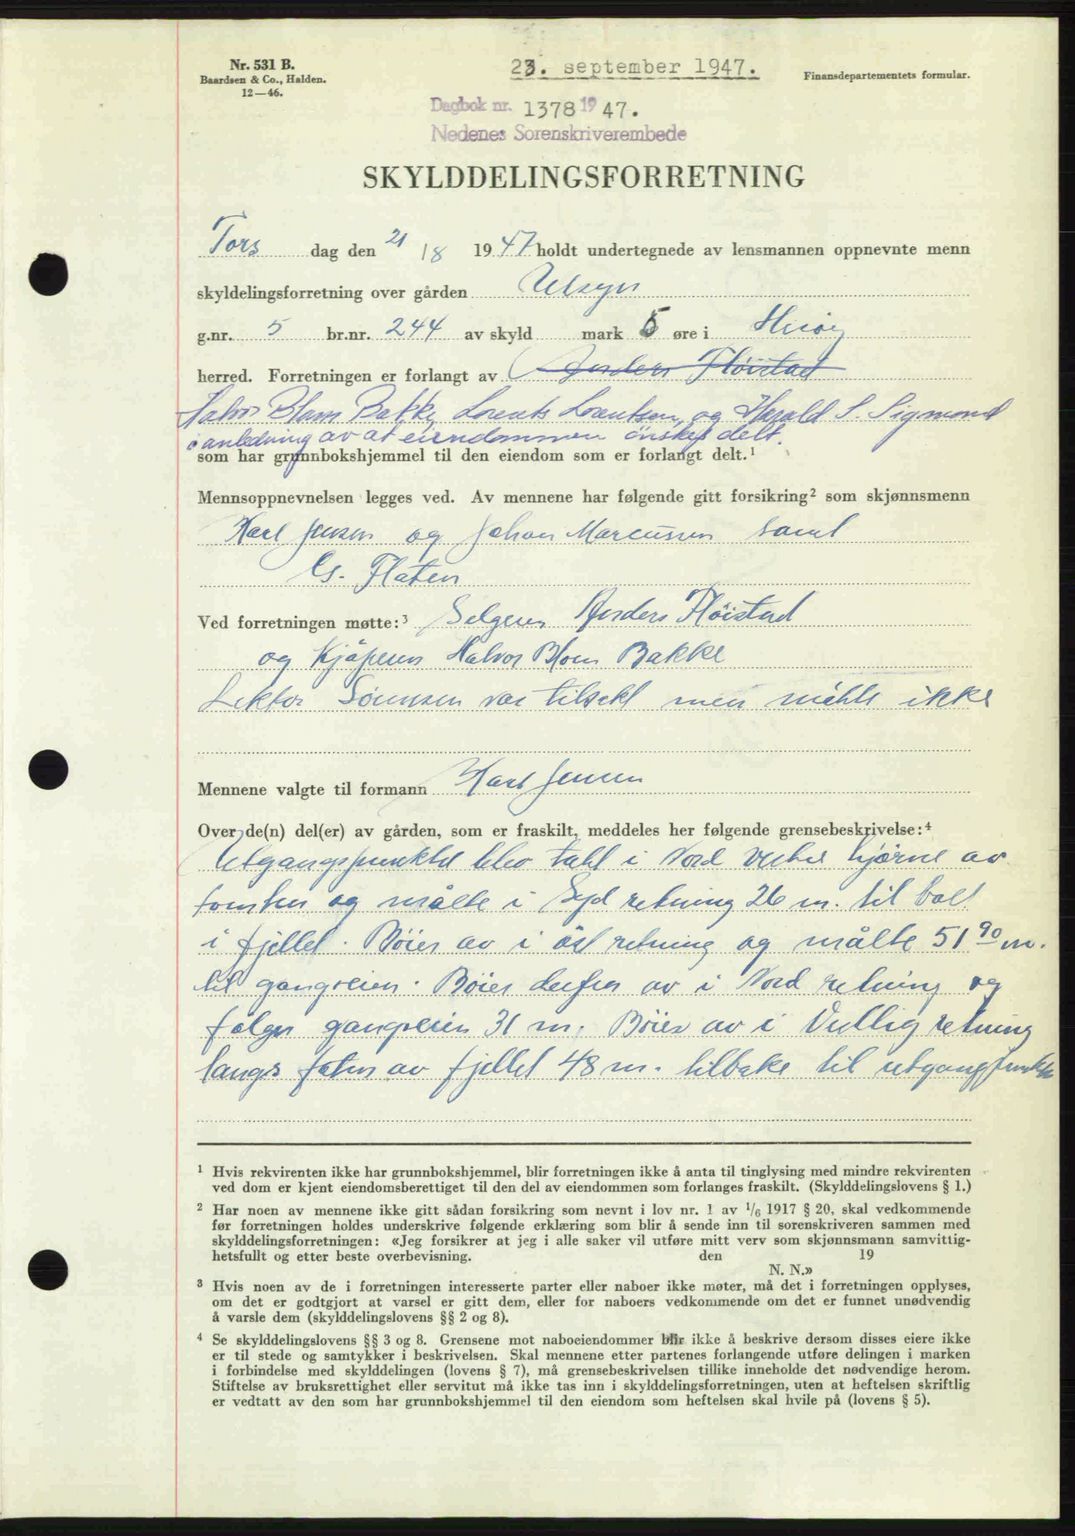 Nr. 531 B.
Baardsen & Co., Halden.
12—46.
23. september 1947.
Finansdepartementets formular.
Dagbok nr. 1378 19 47.
Nedenes Sorenskriverembede
SKYLDDELINGSFORRETNING
Tors dag den 21/8 1947 holdt undertegnede av lensmannen oppnevnte menn
skyldelingsforretning over gården Utsyn
g.nr. 5 br.nr. 244 av skyld mark 5 øre i Hisøy
herred. Forretningen er forlangt av Anders Fløistad
Halvor Blom Bakke, Lorents Lorentsen og Harald S. Sigmond
i anledning av at eiendommen ønskes delt.
som har grunnbokshjemmel til den eiendom som er forlangt delt.¹
Mennsoppnevnelsen legges ved. Av mennene har følgende gitt forsikring² som skjønnsmenn
Karl Jensen og Johan Marcussen samt
G. Flaten
Ved forretningen møtte:³ Selgeren Anders Fløistad
og Kjøperen Halvor Blom Bakke
Lektor Sørensen var tilsakt men møtte ikke
Mennene valgte til formann Karl Jensen
Over de(n) del(er) av gården, som er fraskilt, meddeles her følgende grensebeskrivelse:⁴
Utgangspunktet blev tatt i Nord vestre hjørne av
tomten og målte i Syd retning 26 m. til bolt
i fjellet. Bøier av i øst retning og målte 51 90 m.
til gangveien. Bøier derfra av i Nord retning og
følger gangveien 31 m. Bøier av i Vestlig retning
langs foten av fjellet 48 m. tilbake til utgangspunktet
¹ Hvis rekvirenten ikke har grunnbokshjemmel, blir forretningen ikke å anta til tinglysing med mindre rekvirenten
ved dom er kjent eiendomsberettiget til den del av eiendommen som forlanges fraskilt. (Skylddelingslovens § 1.)
² Har noen av mennene ikke gitt sådan forsikring som nevnt i lov nr. 1 av 1/6 1917 § 20, skal vedkommende
før forretningen holdes underskrive følgende erklæring som blir å sende inn til sorenskriveren sammen med
skylddelingsforretningen: «Jeg forsikrer at jeg i alle saker vil utføre mitt verv som skjønnsmann samvittig-
hetsfullt og etter beste overbevisning. den 19
N. N.»
³ Hvis noen av de i forretningen interesserte parter eller naboer ikke møter, må det i forretningen opplyses,
om det er godtgjort at varsel er gitt dem, eller for naboers vedkommende om det er funnet unødvendig
å varsle dem (skylddelingslovens §§ 2 og 8).
⁴ Se skylddelingslovens §§ 3 og 8. Grensene mot naboeiendommer blir ikke å beskrive dersom disses eiere ikke
er til stede og samtykker i beskrivelsen. Skal mennene etter partenes forlangende utføre delingen i marken
i forbindelse med skylddelingen (lovens § 7), må grensebeskrivelsen tillike inneholde det nødvendige herom.
Stiftelse av bruksrettighet eller servitut må ikke tas inn i skylddelingsforretningen, uten at heftelsen skriftlig
er vedtatt av den som har grunnbokshjemmel til den eiendom som heftelsen skal hvile på (lovens § 5).